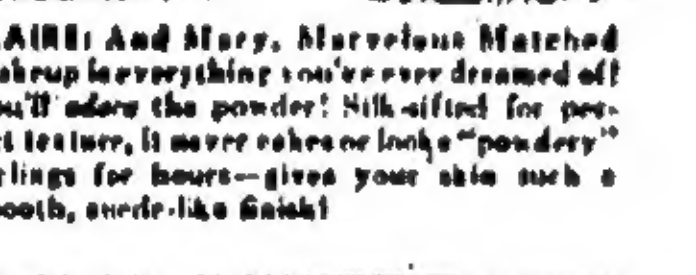 And Mary, Marvelous Matched
is everything you've ever dreamed of!
adore the powder! Silk-sifted for
texture, It never cakes or looks "powdery"
clings for hours—gives your skin such a
suede-like finish!